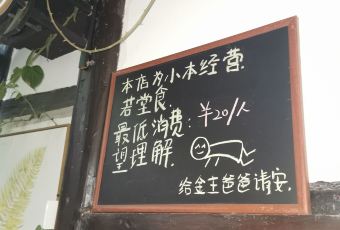 本店为小本经营.
若堂食.
最低消费:￥20/人
望理解.
给金主爸爸请安.